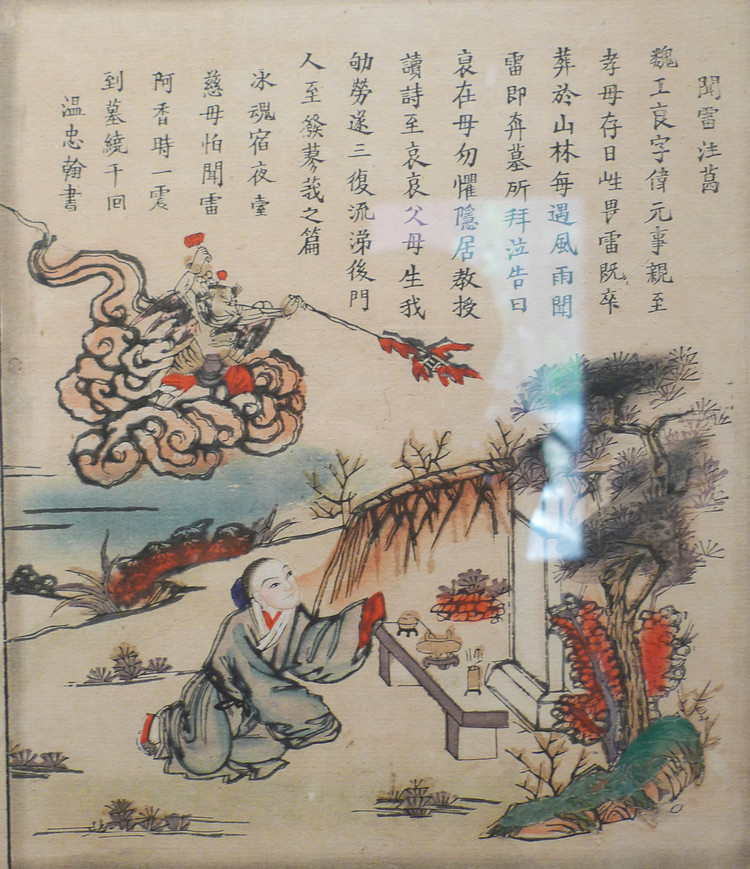 聞雷泣墓
魏王哀字偉元事親至
孝母存日性畏雷既卒
葬於山林每遇風雨聞
雷即奔墓所拜泣告曰
哀在母勿懼隱居教授
讀詩至哀哀父母生我
劬勞遂三復流涕後門
人至發蓼莪之篇
冰魂宿夜臺
慈母怕聞雷
阿香時一震
到墓繞千回
溫忠翰書